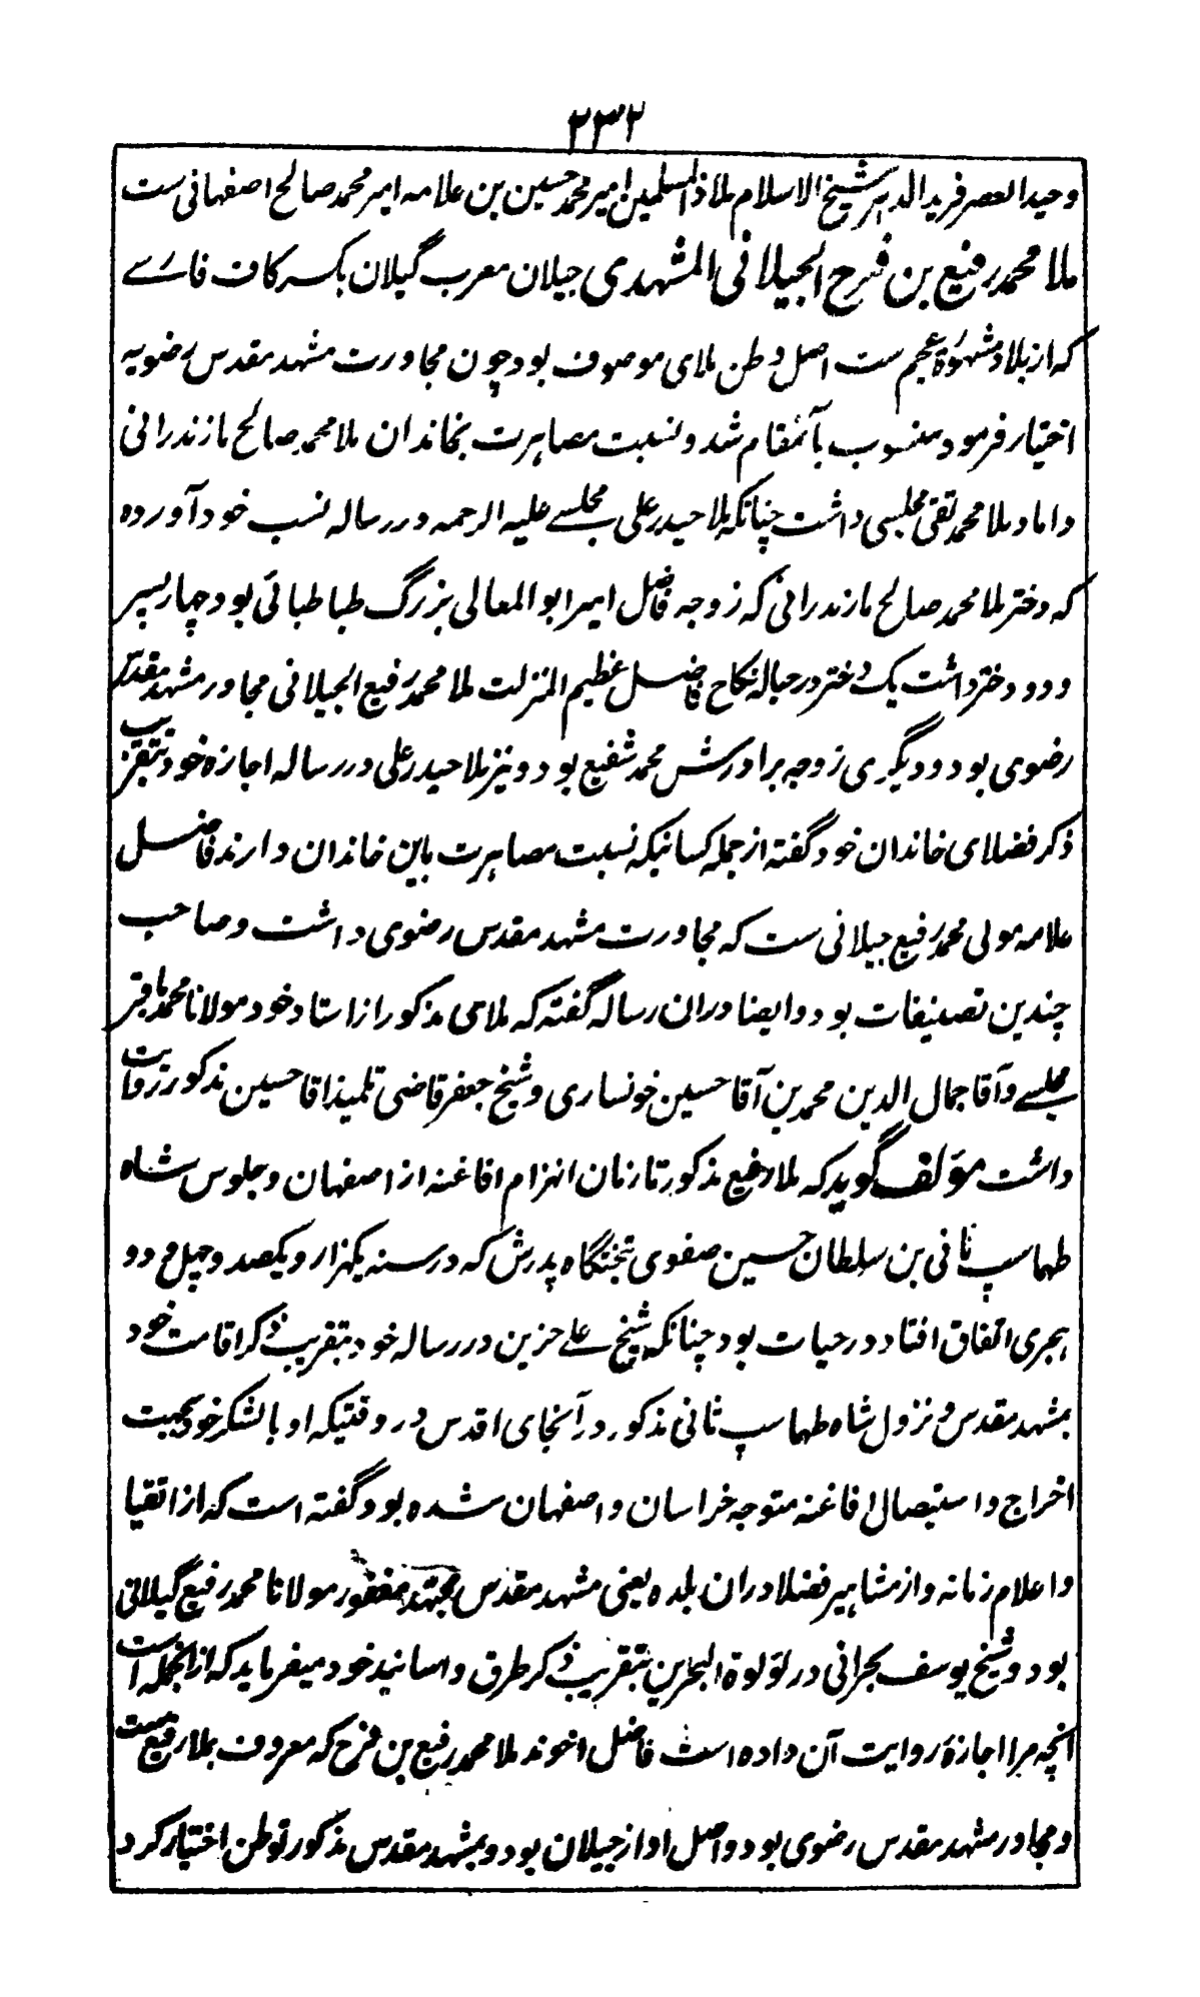 ۲۳۲
وحید العصر فرید الدہر شیخ الاسلام ملاذ المسلمین امیر محمد حسین بن علامہ امیر محمد صالح اصفہانی ست
ملا محمد رفیع بن فرح الجیلانی المشہدی جیلان معرب گیلان بکسر کاف فارسے
کہ از بلاد مشہورۂ عجم ست اصل وطن ملای موصوف بود چون مجاورت مشہد مقدس رضویہ
اختیار فرمود منسوب بآنمقام شد و نسبت مصاہرت بخاندان ملا محمد صالح مازندرانی
داماد ملا محمد تقی مجلسی داشت چنانکہ ملا حیدر علی مجلسے علیہ الرحمہ در رسالہ نسب خود آوردہ
کہ دختر ملا محمد صالح مازندرانی کہ زوجہ فاضل امیر ابو المعالی بزرگ طباطبائی بود چہار پسر
و دو دختر داشت یک دختر در حبالہ نکاح فاضل عظیم المنزلت ملا محمد رفیع الجیلانی مجاور مشہد مقدس
رضوی بود و دیگری زوجہ برادرش محمد شفیع بود و نیز ملا حیدر علی در رسالہ اجازہ خود بتقریب
ذکر فضلای خاندان خود گفتہ از جملہ کسانیکہ نسبت مصاہرت باین خاندان دارند فاضل
علامہ مولی محمد رفیع جیلانی ست کہ مجاورت مشہد مقدس رضوی داشت و صاحب
چندین تصنیفات بود و ایضا دران رسالہ گفتہ کہ ملای مذکور از استاد خود مولانا محمد باقر
مجلسے و آقا جمال الدین محمد بن آقا حسین خونساری و شیخ جعفر قاضی تلمیذ اقا حسین مذکور روایت
داشت مؤلف گوید کہ ملا رفیع مذکور تا زمان انہزام افاغنہ از اصفہان و جلوس شاہ
طہماسپ ثانی بن سلطان حسین صفوی بتختگاہ پدرش کہ در سنہ یکہزار و یکصد و چہل و دو
ہجری اتفاق افتاد در حیات بود چنانکہ شیخ علے حزین در رسالہ خود بتقریب ذکر اقامت خود
بمشہد مقدس و نزول شاہ طہماسپ ثانی مذکور در آنجای اقدس در وقتیکہ او با لشکر خود بجہت
اخراج و استیصال افاغنہ متوجہ خراسان و اصفہان شدہ بود گفتہ است کہ از اتقیا
و اعلام زمانہ و از مشاہیر فضلا دران بلدہ یعنی مشہد مقدس مجتہد مغفور مولانا محمد رفیع گیلانی
بود و شیخ یوسف بحرانی در لؤلوۃ البحرین بتقریب ذکر طرق و اسانید خود میفرماید کہ از انجملہ است
آنچہ مرا اجازۂ روایت آن دادہ است فاضل اخوند ملا محمد رفیع بن فرح کہ معروف بملا رفیع ست
و مجاور مشہد مقدس رضوی بود و اصل او از جیلان بود و بمشہد مقدس مذکور توطن اختیار کرد